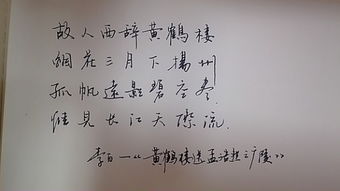 故人西辞黄鹤楼
烟花三月下揚州
孤帆遠影碧空尽
惟見长江天際流
李白一《黄鹤楼送孟浩然之广陵》